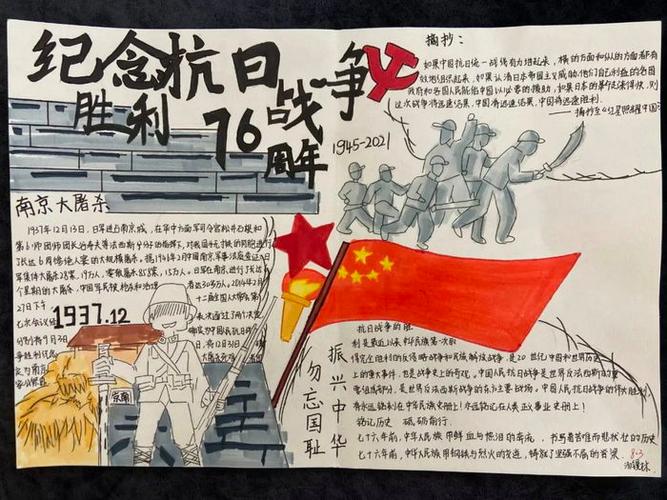 纪念抗日战争
胜利76周年
1945-2021
摘抄：
如果中国抗日统一战线有力增起来，横的方面和纵的方面都有
效地组织起来，如果认清日本帝国主义威胁他们自己利益的各国
政府和各国人民能给中国以必要的援助，如果日本的革命起来得快，则
这次战争将迅速结果，中国将迅速胜利。
——摘抄至《红星照耀中国》
南京大屠杀
1937年12月13日，日军进占南京城，在华中方面军司令官松井石根和
第6师团师团长谷寿夫等法西斯分子的指挥下，对我国
行了长达6周
军集体大屠杀28案，19万人，零散屠杀858案，15万人。日军在南京进行了长达
个星期的大屠杀，中国军民被枪杀和活埋
者达30多万人。2014年2月
27日下午
十二届全国人大常委会第
七次会议经
表决通过了两个决定
分别将9月3日
确定为中国人民抗日战
争胜利纪念
日，将12月13日
定为南京
大屠杀死难
1937.12
南京
振兴中华
勿忘国耻
抗日战争的胜
利是最近以来中华民族第一次取
得完全胜利的反侵略战争和民族解放战争，是20世纪中国和世界历史
上的重大事件，也是战争史上的奇观。中国人民抗日战争是世界反法西斯战争的重
要组成部分，是世界反法西斯战争的东方主要战场，中国人民抗日战争的伟大胜利，
将永远铭刻在中华民族史册上！永远铭记在人类正义事业史册上！
铭记历史 砥砺前行
七十六年前，中华人民族用鲜血与热泪的奔流，书写着苦难而悲伏壮的历史
七十六年前，中华人民族用钢铁与烈火的交造，铸就了坚强不屈的脊梁。
8.3